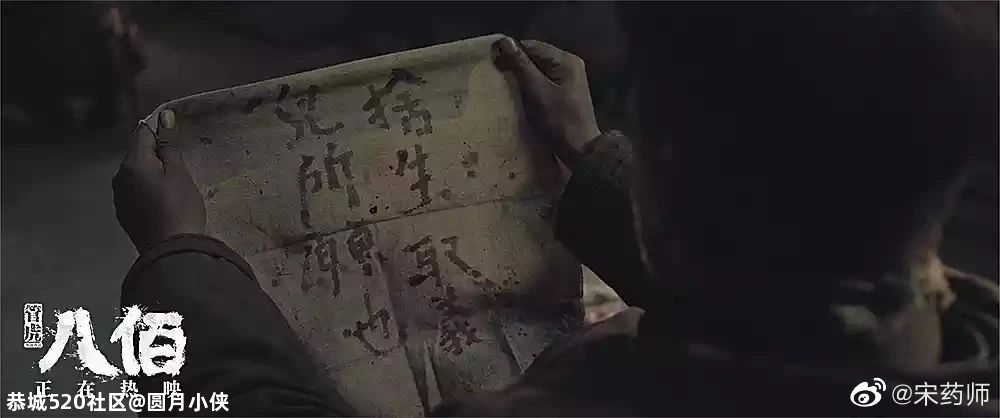 捨生取義
兒所願也
管虎
八佰
正在热映
恭城520社区@圆月小侠
@宋药师